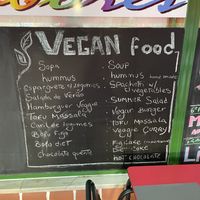 VEGAN food
Sopa
hummus
Esparguete c/ legumes
Salada de Verão
Hamburguer Veggie
Tofu Massala
Caril de legumes
Bolo Figo
Bolo diet
chocolate quente
Soup
hummus
Spaghetti w/
vegetables
Summer Salad
Vegan Burger
Tofu Massala
Veggie Curry
Fig Cake
Diet Cake
Hot chocolate